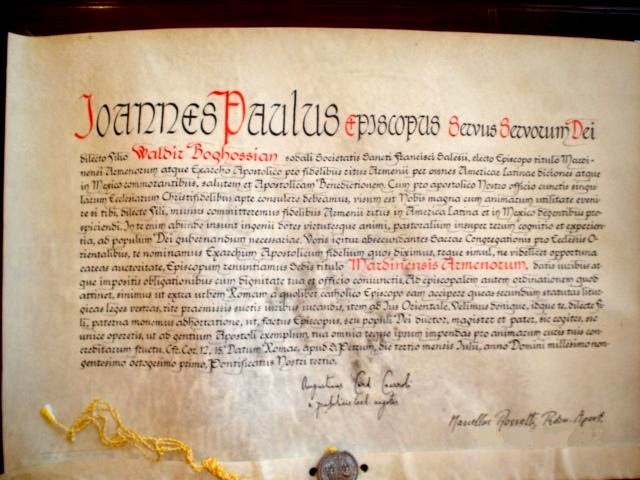 Joannes Paulus Episcopus Servus Servorum Dei
dilecto Filio Waldir Boghossian sodali Societatis Sancti Francisci Salesii, electo Episcopo titulo Mardi-
nensi Armenorum atque Exarcho Apostolico pro fidelibus ritus Armenii per omnes Americae Latinae diciones atque
in Mexico commorantibus, salutem et Apostolicam Benedictionem. Cum pro apostolico Nostro officio cunctis singu-
larum Ecclesiarum Christifidelibus apte consulere debeamus, visum est Nobis magna cum animarum utilitate eveni-
re si tibi, dilecte Fili, munus committeremus fidelibus Armenii ritus in America Latina et in Mexico degentibus pro-
spiciendi. In te enim abunde insunt ingenii dotes virtutesque animi, pastoralium insuper rerum cognitio et experien-
tia, ad populum Dei gubernandum necessariae. Votis igitur obsecundantes Sacrae Congregationis pro Ecclesiis O-
rientalibus, te nominamus Exarchum Apostolicum fidelium quos diximus, teque simul, ne videlicet opportuna
careas auctoritate, Episcopum renuntiamus Sedis titulo Mardinensis Armenorum, datis iuribus at-
que impositis obligationibus cum dignitate tua et officio coniunctis. Ad episcopalem autem ordinationem quod
attinet, sinimus ut extra urbem Romam a quolibet catholico Episcopo eam accipere queas secundum statutas litur-
gicas leges vestras, rite praemissis suetis iuribus iurandis, item ad Ius Orientale. Velimus denique, idque te, dilecte fi-
li, paterna monemus adhortatione, ut, factus Episcopus, seu populi Dei ductor, magister et pater, sic cogites, sic-
unice operetis, ut ad gentium Apostoli exemplum, tua omnia teque ipsum impendas pro animarum curis tuis con-
creditarum fructu. Cfr. Cor. 12, 15. Datum Romae, apud S. Petrum, die tertio mensis Iulii, anno Domini millesimo non-
gentesimo octogesimo primo, Pontificatus Nostri tertio.
Augustinus Card Casaroli
a publicis Eccl. negotiis
Marcellus Rossetti, Proton. Apost.